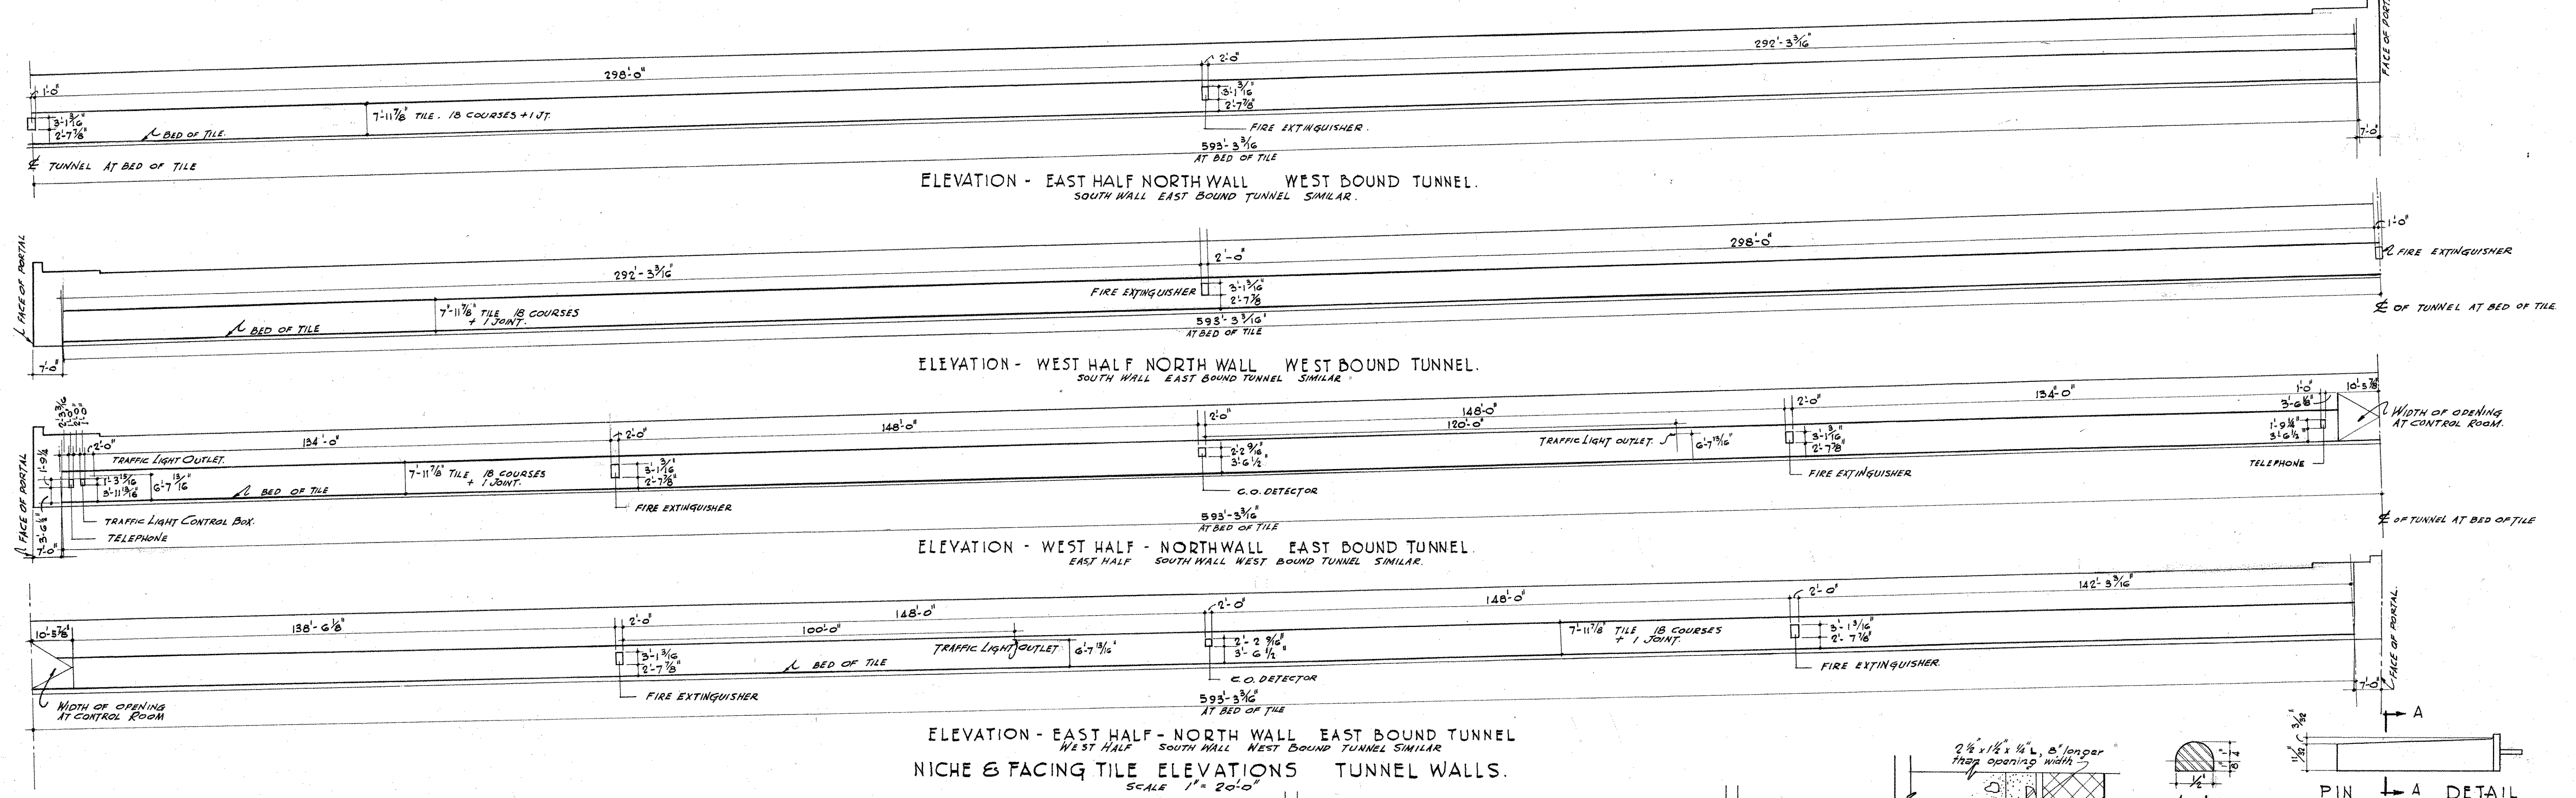 FACE OF PORT
298'-0"
2'-0"
292'-3 3/16"
1'-0"
3'-1 3/16"
2'-7 7/8"
BED OF TILE.
7'-11 7/8" TILE. 18 COURSES + 1 JT.
3'-1 3/16"
2'-7 7/8"
FIRE EXTINGUISHER.
7'-0"
593'-3 3/16"
AT BED OF TILE
℄ TUNNEL AT BED OF TILE
ELEVATION - EAST HALF NORTH WALL WEST BOUND TUNNEL.
SOUTH WALL EAST BOUND TUNNEL SIMILAR.
FACE OF PORTAL
292'-3 3/16"
2'-0"
298'-0"
1'-0"
FIRE EXTINGUISHER
BED OF TILE
7'-11 7/8" TILE 18 COURSES
+ 1 JOINT.
FIRE EXTINGUISHER
3'-1 3/16"
2'-7 7/8
593'-3 3/16"
AT BED OF TILE
℄ OF TUNNEL AT BED OF TILE
7'-0"
ELEVATION - WEST HALF NORTH WALL WEST BOUND TUNNEL.
SOUTH WALL EAST BOUND TUNNEL SIMILAR
FACE OF PORTAL
2'-0"
134'-0"
2'-0"
148'-0"
2'-0"
148'-0"
120'-0"
2'-0"
134'-0"
1'-0"
10'-5 7/8"
3'-6 1/8"
WIDTH OF OPENING
AT CONTROL ROOM.
TRAFFIC LIGHT OUTLET.
1'-9 1/4
1'-3 13/16"
3'-11 13/16"
6'-7 13/16"
BED OF TILE
7'-11 7/8" TILE 18 COURSES
+ 1 JOINT.
3'-1 3/16"
2'-7 7/8"
2'-2 9/16"
3'-6 1/2"
TRAFFIC LIGHT OUTLET
6'-7 13/16"
3'-1 3/16"
2'-7 7/8"
1'-9 1/4"
3'-6 1/2"
TELEPHONE
FIRE EXTINGUISHER
C.O. DETECTOR
FIRE EXTINGUISHER
TRAFFIC LIGHT CONTROL BOX.
TELEPHONE
3'-6 1/2"
7'-0"
593'-3 3/16"
AT BED OF TILE
℄ OF TUNNEL AT BED OF TILE
ELEVATION - WEST HALF - NORTH WALL EAST BOUND TUNNEL.
EAST HALF SOUTH WALL WEST BOUND TUNNEL SIMILAR.
10'-5 7/8"
138'-6 1/8"
2'-0"
148'-0"
100'-0"
2'-0"
148'-0"
2'-0"
142'-3 3/16"
FACE OF PORTAL.
3'-1 3/16
2'-7 7/8"
BED OF TILE
TRAFFIC LIGHT OUTLET
6'-7 13/16"
2'-2 9/16"
3'-6 1/2"
7'-11 7/8" TILE 18 COURSES
+ 1 JOINT.
3'-1 3/16"
2'-7 7/8"
FIRE EXTINGUISHER
C.O. DETECTOR
FIRE EXTINGUISHER
7'-0"
WIDTH OF OPENING
AT CONTROL ROOM
593'-3 3/16"
AT BED OF TILE
ELEVATION - EAST HALF - NORTH WALL EAST BOUND TUNNEL
WEST HALF SOUTH WALL WEST BOUND TUNNEL SIMILAR
NICHE & FACING TILE ELEVATIONS TUNNEL WALLS.
SCALE 1" = 20'-0"
2 1/2" x 1 1/2" x 1/4" L, 8" longer
than opening width
1/4"
1/8"
1/2"
3/32"
11/32"
A
PIN A DETAIL